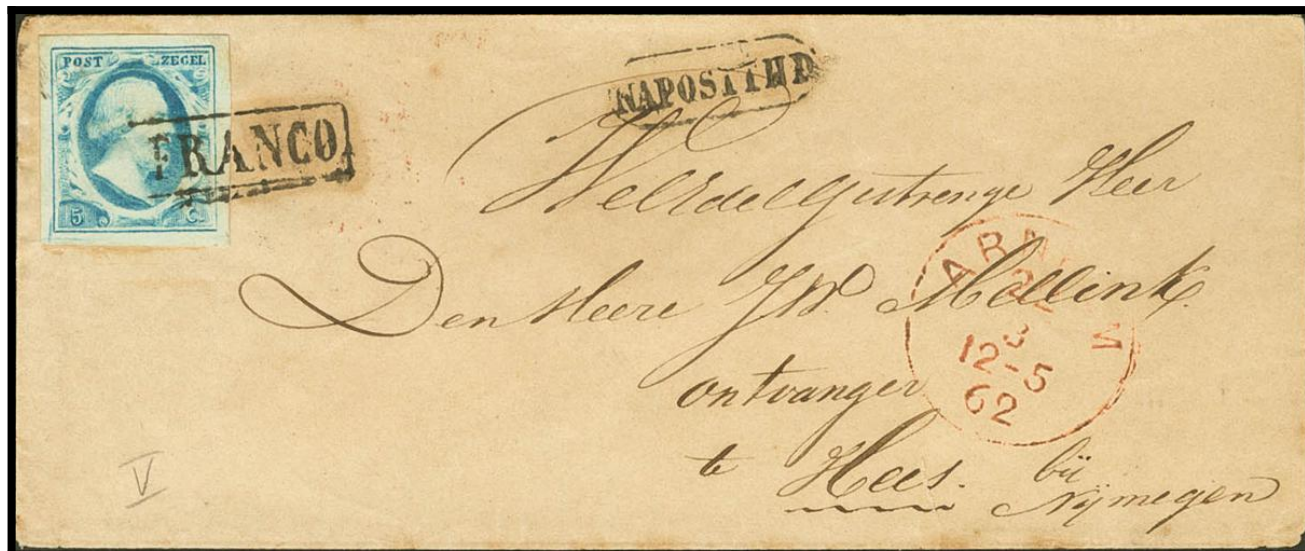 POST ZEGEL
5 C.
FRANCO
NAPOSTTIJD
WelEdelGestrenge Heer
Den Heere J.W. Mollink
ontvanger
te Hees. bij
Nijmegen
ARNHEM
3
12-5
62
V